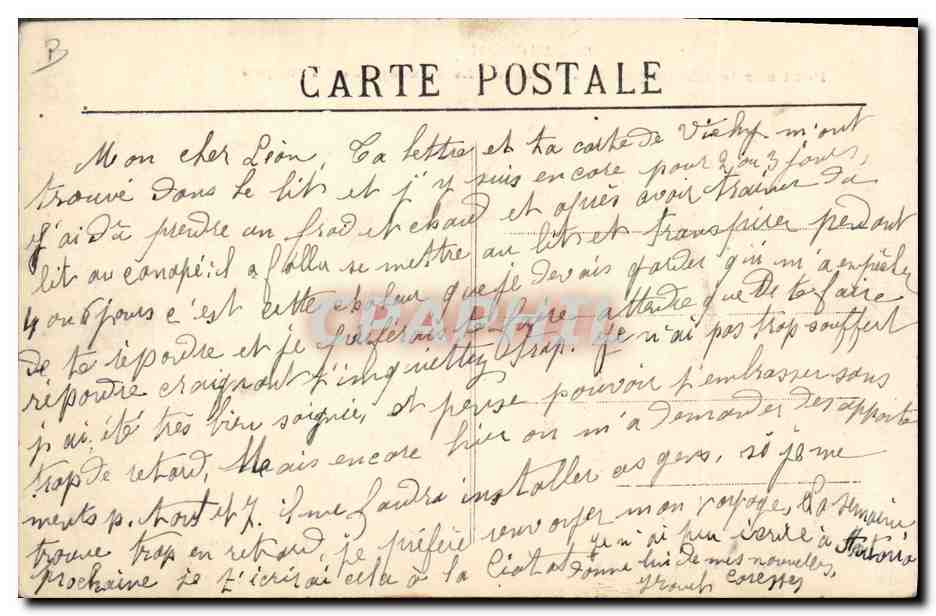 B
CARTE POSTALE
Mon cher Léon, Ta lettre et ta carte de Vichy m'ont
trouvé dans le lit et j'y suis encore pour 2 ou 3 jours,
j'ai dû prendre un froid et chaud et après avoir trainer du
lit au canapé il a fallu se mettre au lit et transpirer pendant
4 ou 6 jours c'est cette chaleur que je devais garder qui m'a empêcher
de te répondre et je préférais te faire attendre que de te faire
répondre craignant t'inquietter trop. Je n'ai pas trop souffert
j'ai été très bien soignée, et pense pouvoir t'embrasser sans
trop de retard, Mais encore hier on m'a demander des apparte
ments p. Aout et 7. il me faudra installer ces gens, si je me
trouve trop en retard, je préfère renvoyer mon voyage, La semaine
prochaine je t'écrirai cela à la Ciotat
je n'ai peu écrire à Antonia
donne lui de mes nouvelles,
Caresses
CPAPHIL